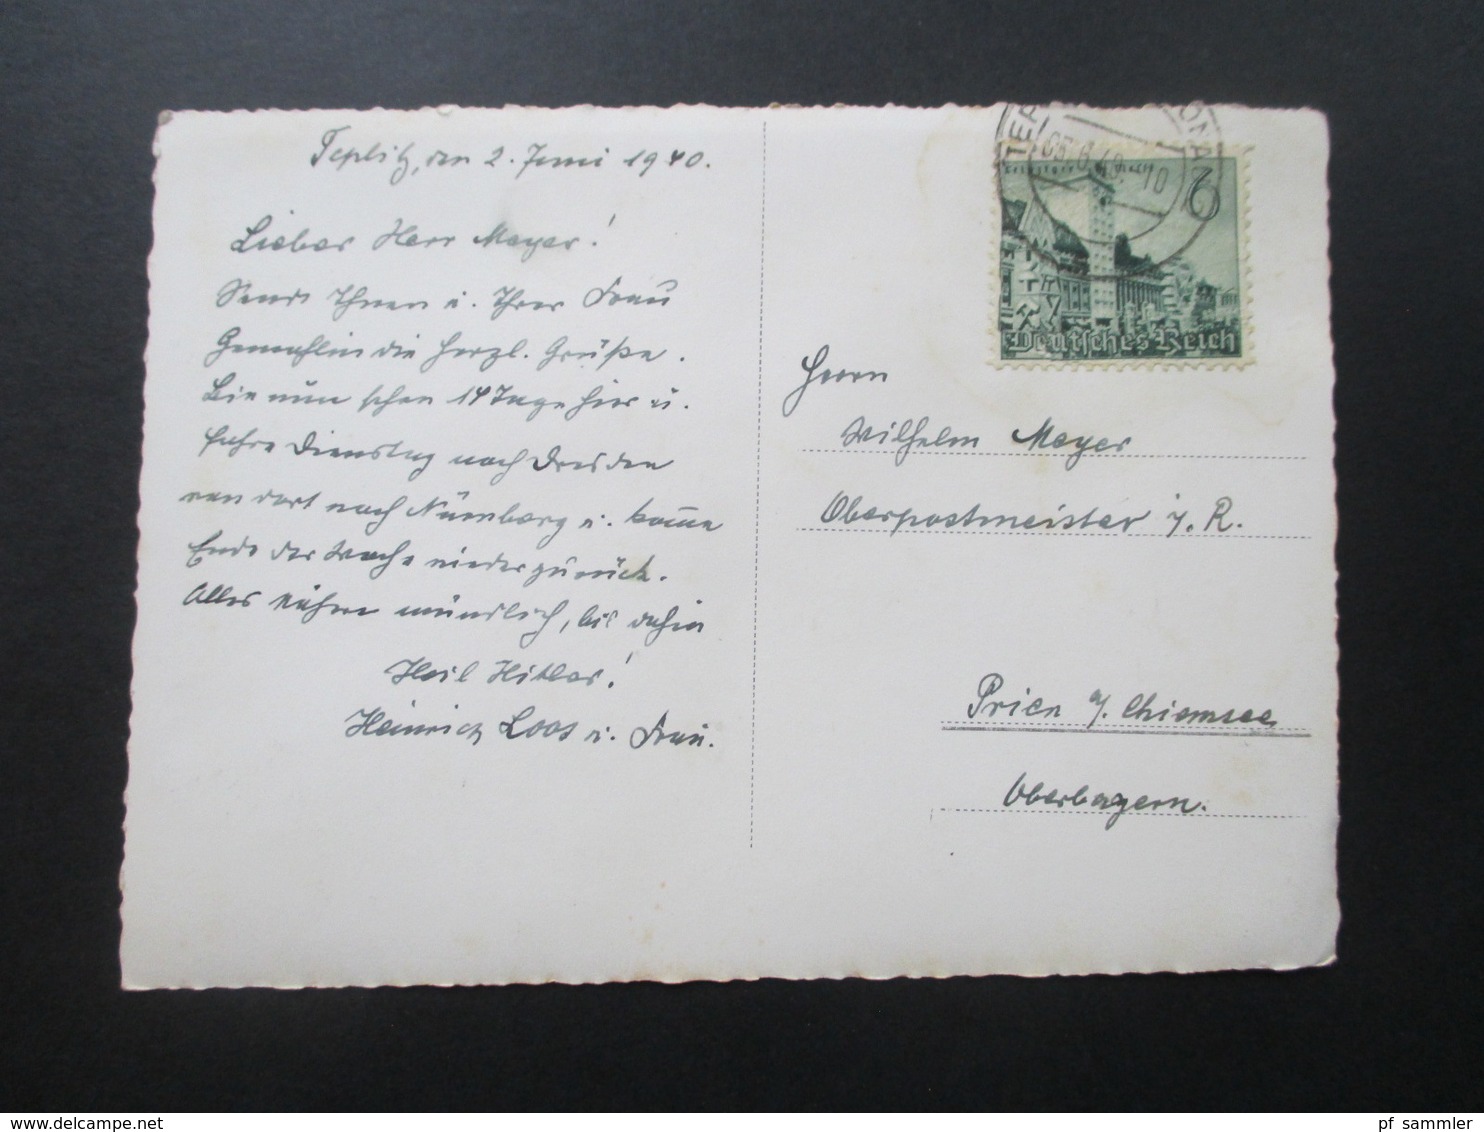 Teplitz, den 2. Juni 1940.
Lieber Herr Meyer!
Sende Ihnen u. Ihrer Frau
Gemahlin die herzl. Grüße.
Bin nun schon 14 Tage hier u.
fahre Dienstag nach Dresden
von dort nach Nürnberg u. komme
Ende der Woche wieder zurück.
Alles nähere mündlich, bis dahin
Heil Hitler!
Heinrich Loos u. Frau.
6
Deutsches Reich
Herrn
Wilhelm Meyer
Oberpostmeister i. R.
Prien a/. Chiemsee
Oberbayern.
pf_sammler
www.delcampe.net